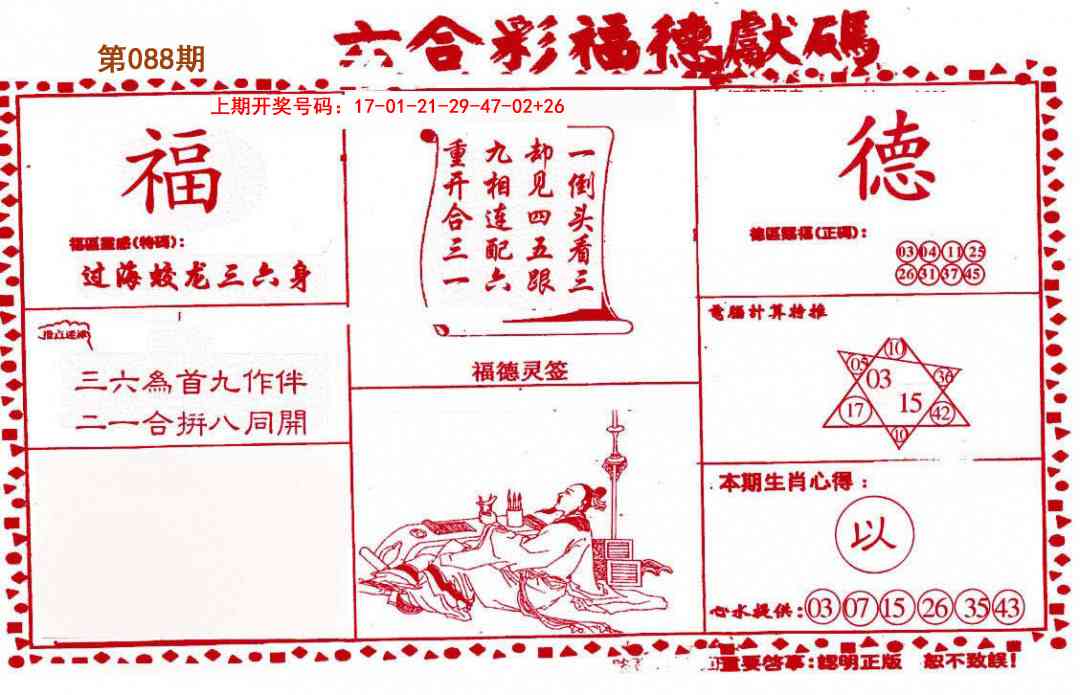 第088期
六合彩福德獻碼
上期开奖号码：17-01-21-29-47-02+26
福
福區靈感(特碼)：
过海蛟龙三六身
三六為首九作伴
二一合拼八同開
一倒头看三
却见四五跟
九相连配六
重开合三一
福德灵签
德
德區賜福(正碼)：
03 04 11 25
26 31 37 45
電腦計算特推
10
05
03
36
17
15
42
10
本期生肖心得：
以
心水提供：03 07 15 26 35 43
重要啓事：認明正版 恕不致誤！